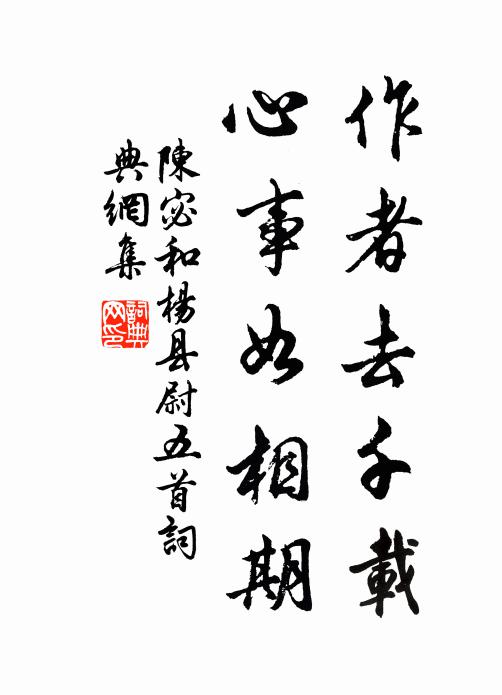 作者去千載
心事如相期
陳宓和楊县尉五首詞
典網集
詞典
网印